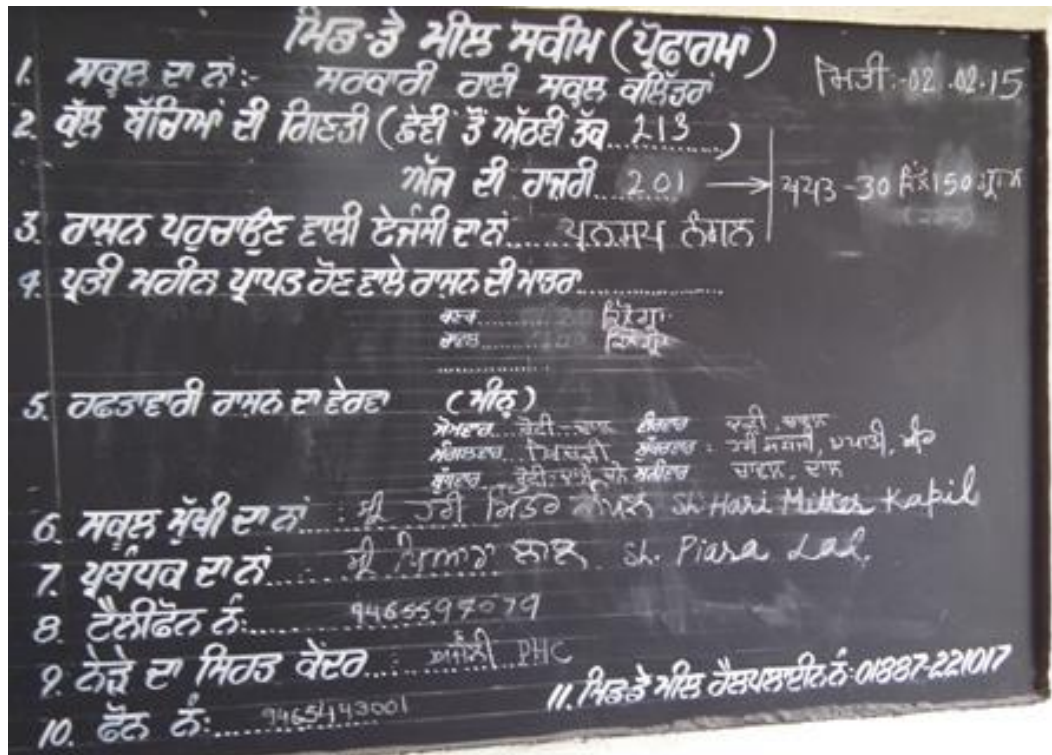 ਮਿਡ-ਡੇ ਮੀਲ ਸਕੀਮ (ਪ੍ਰੋਫਾਰਮਾ)
ਮਿਤੀ:-02.02.15
1. ਸਕੂਲ ਦਾ ਨਾਂ:- ਸਰਕਾਰੀ ਹਾਈ ਸਕੂਲ ਕਲਿੱਤਰਾਂ
2. ਕੁੱਲ ਬੱਚਿਆਂ ਦੀ ਗਿਣਤੀ (ਛੇਵੀਂ ਤੋਂ ਅੱਠਵੀਂ ਤੱਕ 213......)
ਅੱਜ ਦੀ ਹਾਜ਼ਰੀ 201 → 30 150
3. ਰਾਸ਼ਨ ਪਹੁਚਾਉਣ ਵਾਲੀ ਏਜੰਸੀ ਦਾ ਨਾਂ...... ਪਨਸਪ ਨੰਗਲ
4. ਪ੍ਰਤੀ ਮਹੀਨ ਪ੍ਰਾਪਤ ਹੋਣ ਵਾਲੇ ਰਾਸ਼ਨ ਦੀ ਮਾਤਰਾ..............
ਕਣਕ........
ਚਾਵਲ........
5. ਹਫਤਾਵਾਰੀ ਰਾਸ਼ਨ ਦਾ ਵੇਰਵਾ (ਮੀਨੂ)
ਸੋਮਵਾਰ ਰੋਟੀ ਦਾਲ ਵੀਰਵਾਰ ਕੜੀ, ਚਾਵਲ
ਮੰਗਲਵਾਰ ਖਿਚੜੀ ਸ਼ੁੱਕਰਵਾਰ : ਹਰੀ ਸਬਜੀ, ਚਪਾਤੀ, ਖੀਰ
ਬੁੱਧਵਾਰ ਰੋਟੀ ਸ਼ਨੀਵਾਰ ਚਾਵਲ, ਦਾਲ
6. ਸਕੂਲ ਮੁੱਖੀ ਦਾ ਨਾਂ : ਸ਼੍ਰੀ ਹਰੀ ਮਿੱਤਰ ਕਪਿਲ Sh Hari Mitter Kapil
7. ਪ੍ਰਬੰਧਕ ਦਾ ਨਾਂ...... ਸ਼੍ਰੀ ਪਿਆਰਾ ਲਾਲ Sh. Piara Lal.
8. ਟੈਲੀਫੋਨ ਨੰ:...... 9465597079
9. ਨੇੜੇ ਦਾ ਸਿਹਤ ਕੇਂਦਰ...: PHC
10. ਫੋਨ ਨੰ:...... 9465443001
11. ਮਿਡ-ਡੇ ਮੀਲ ਹੈਲਪਲਾਈਨ ਨੰ:01887-221017